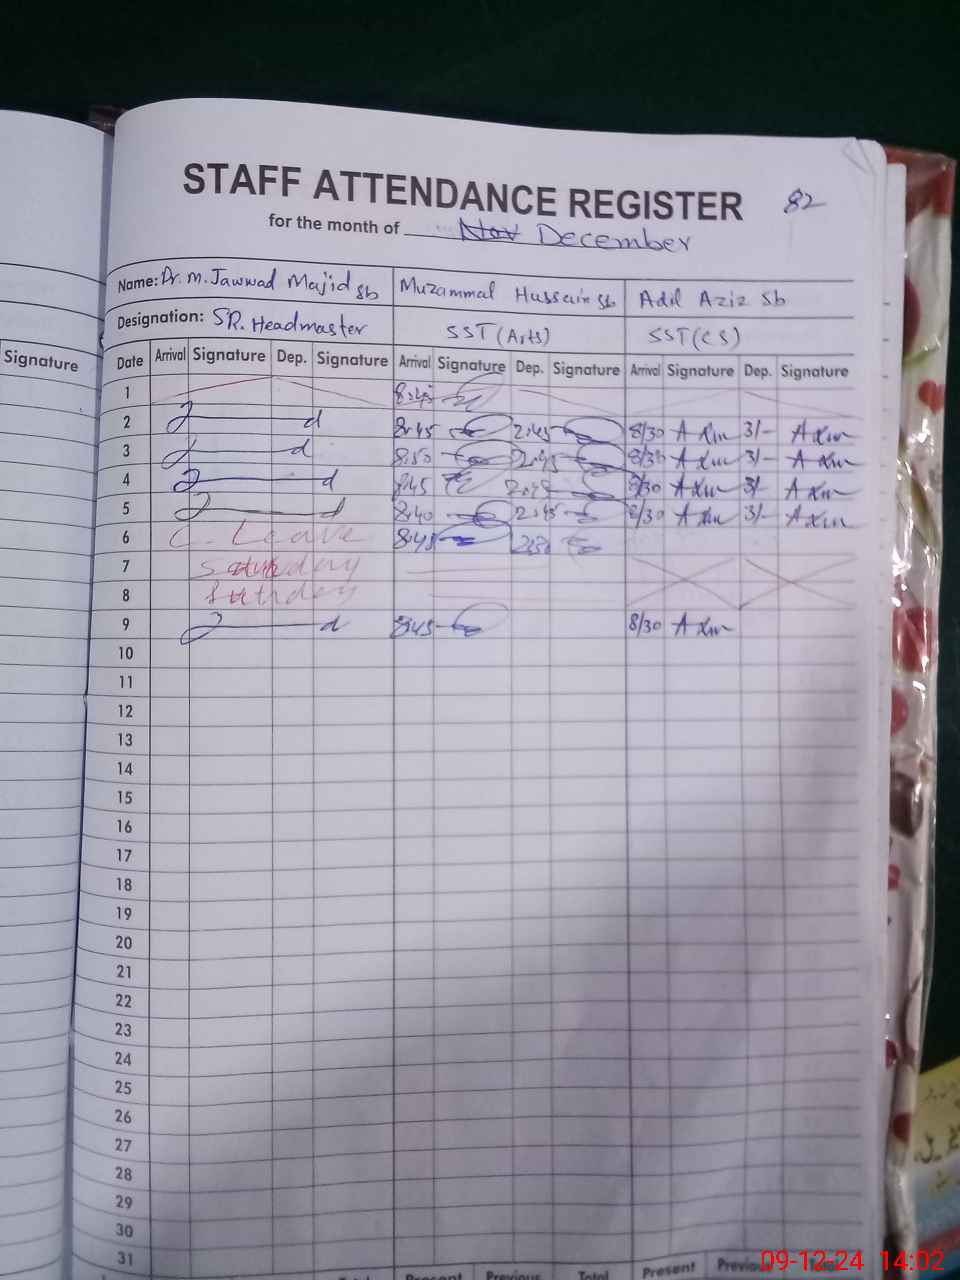 STAFF ATTENDANCE REGISTER 82
for the month of Nov December
Name: Dr. M. Jawwad Majid sb Muzammal Hussain sb Adil Aziz sb
Designation: SR. Headmaster SST (Arts) SST (CS)
Signature
Date Arrival Signature Dep. Signature Arrival Signature Dep. Signature Arrival Signature Dep. Signature
1 8:45
2 8:45 2:45 8/30 3/-
3 8:50 2:45 8/30 3/-
4 8:45 2:45 8/30 3/-
5 8:40 2:45 8/30 3/-
6 C. Leave 8:45 2:30
7 Saturday
8
9 8:45 8/30
10
11
12
13
14
15
16
17
18
19
20
21
22
23
24
25
26
27
28
29
30
31
Total Present Previous Total Present Previous
09-12-24 14:02